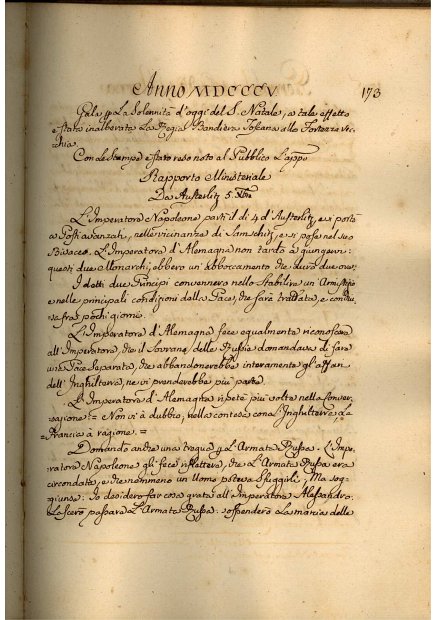 Anno MDCCCV. 173
Gala p La Solennità d'oggi del S. Natale, a tale effetto
e stata inalberata La Regia Bandiera Toscana alle Fortezze Vec=
chia.
Con le Stampe e stato reso noto al Pubblico L'app.o
Rapporto Ministeriale
Da Austerlitz 5. Xbre
L'Imperatore Napoleone partì il dì 4 d'Austerlitz, e si portò
a Posti avanzati, nelle vicinanze di Sarnschitz, e si pose nel suo
Bivacco. L'Imperatore d'Alemagna non tardò à giungervi:
questi due Monarchi, ebbero un'abboccamento che durò due ore.
I detti due Principi convennero nello Stabilire un'Armistizio
e nelle principali condizioni della Pace, che sarà trattata, e conclu=
sa fra pochi giorni.
L'Imperatore d'Alemagna fece equalmente riconoscere
all'Imperatore, che il Sovrano delle Russie domandava di fare
una Pace Separata, che abbandonerebbe interamente gl'affari
dell'Inghilterra, ne vi prenderebbe più parte.
L'Imperatore d'Alemagna ripetè più volte nella Conver=
sazione = Non vi è dubbio, nella contesa con l'Inghilterra, La
Francia à ragione. =
Domandò anche una tregua p L'Armata Russa. L'Impe=
ratore Napoleone gli fece riflettere, che L'Armata Russa era
circondata, e che nemmeno un Uomo poteva Sfuggirli; Ma sog=
giunse: Io desidero far cosa grata all'Imperatore Alessandro.
Lascerò passare L'Armata Russa: sospenderò La marcia delle